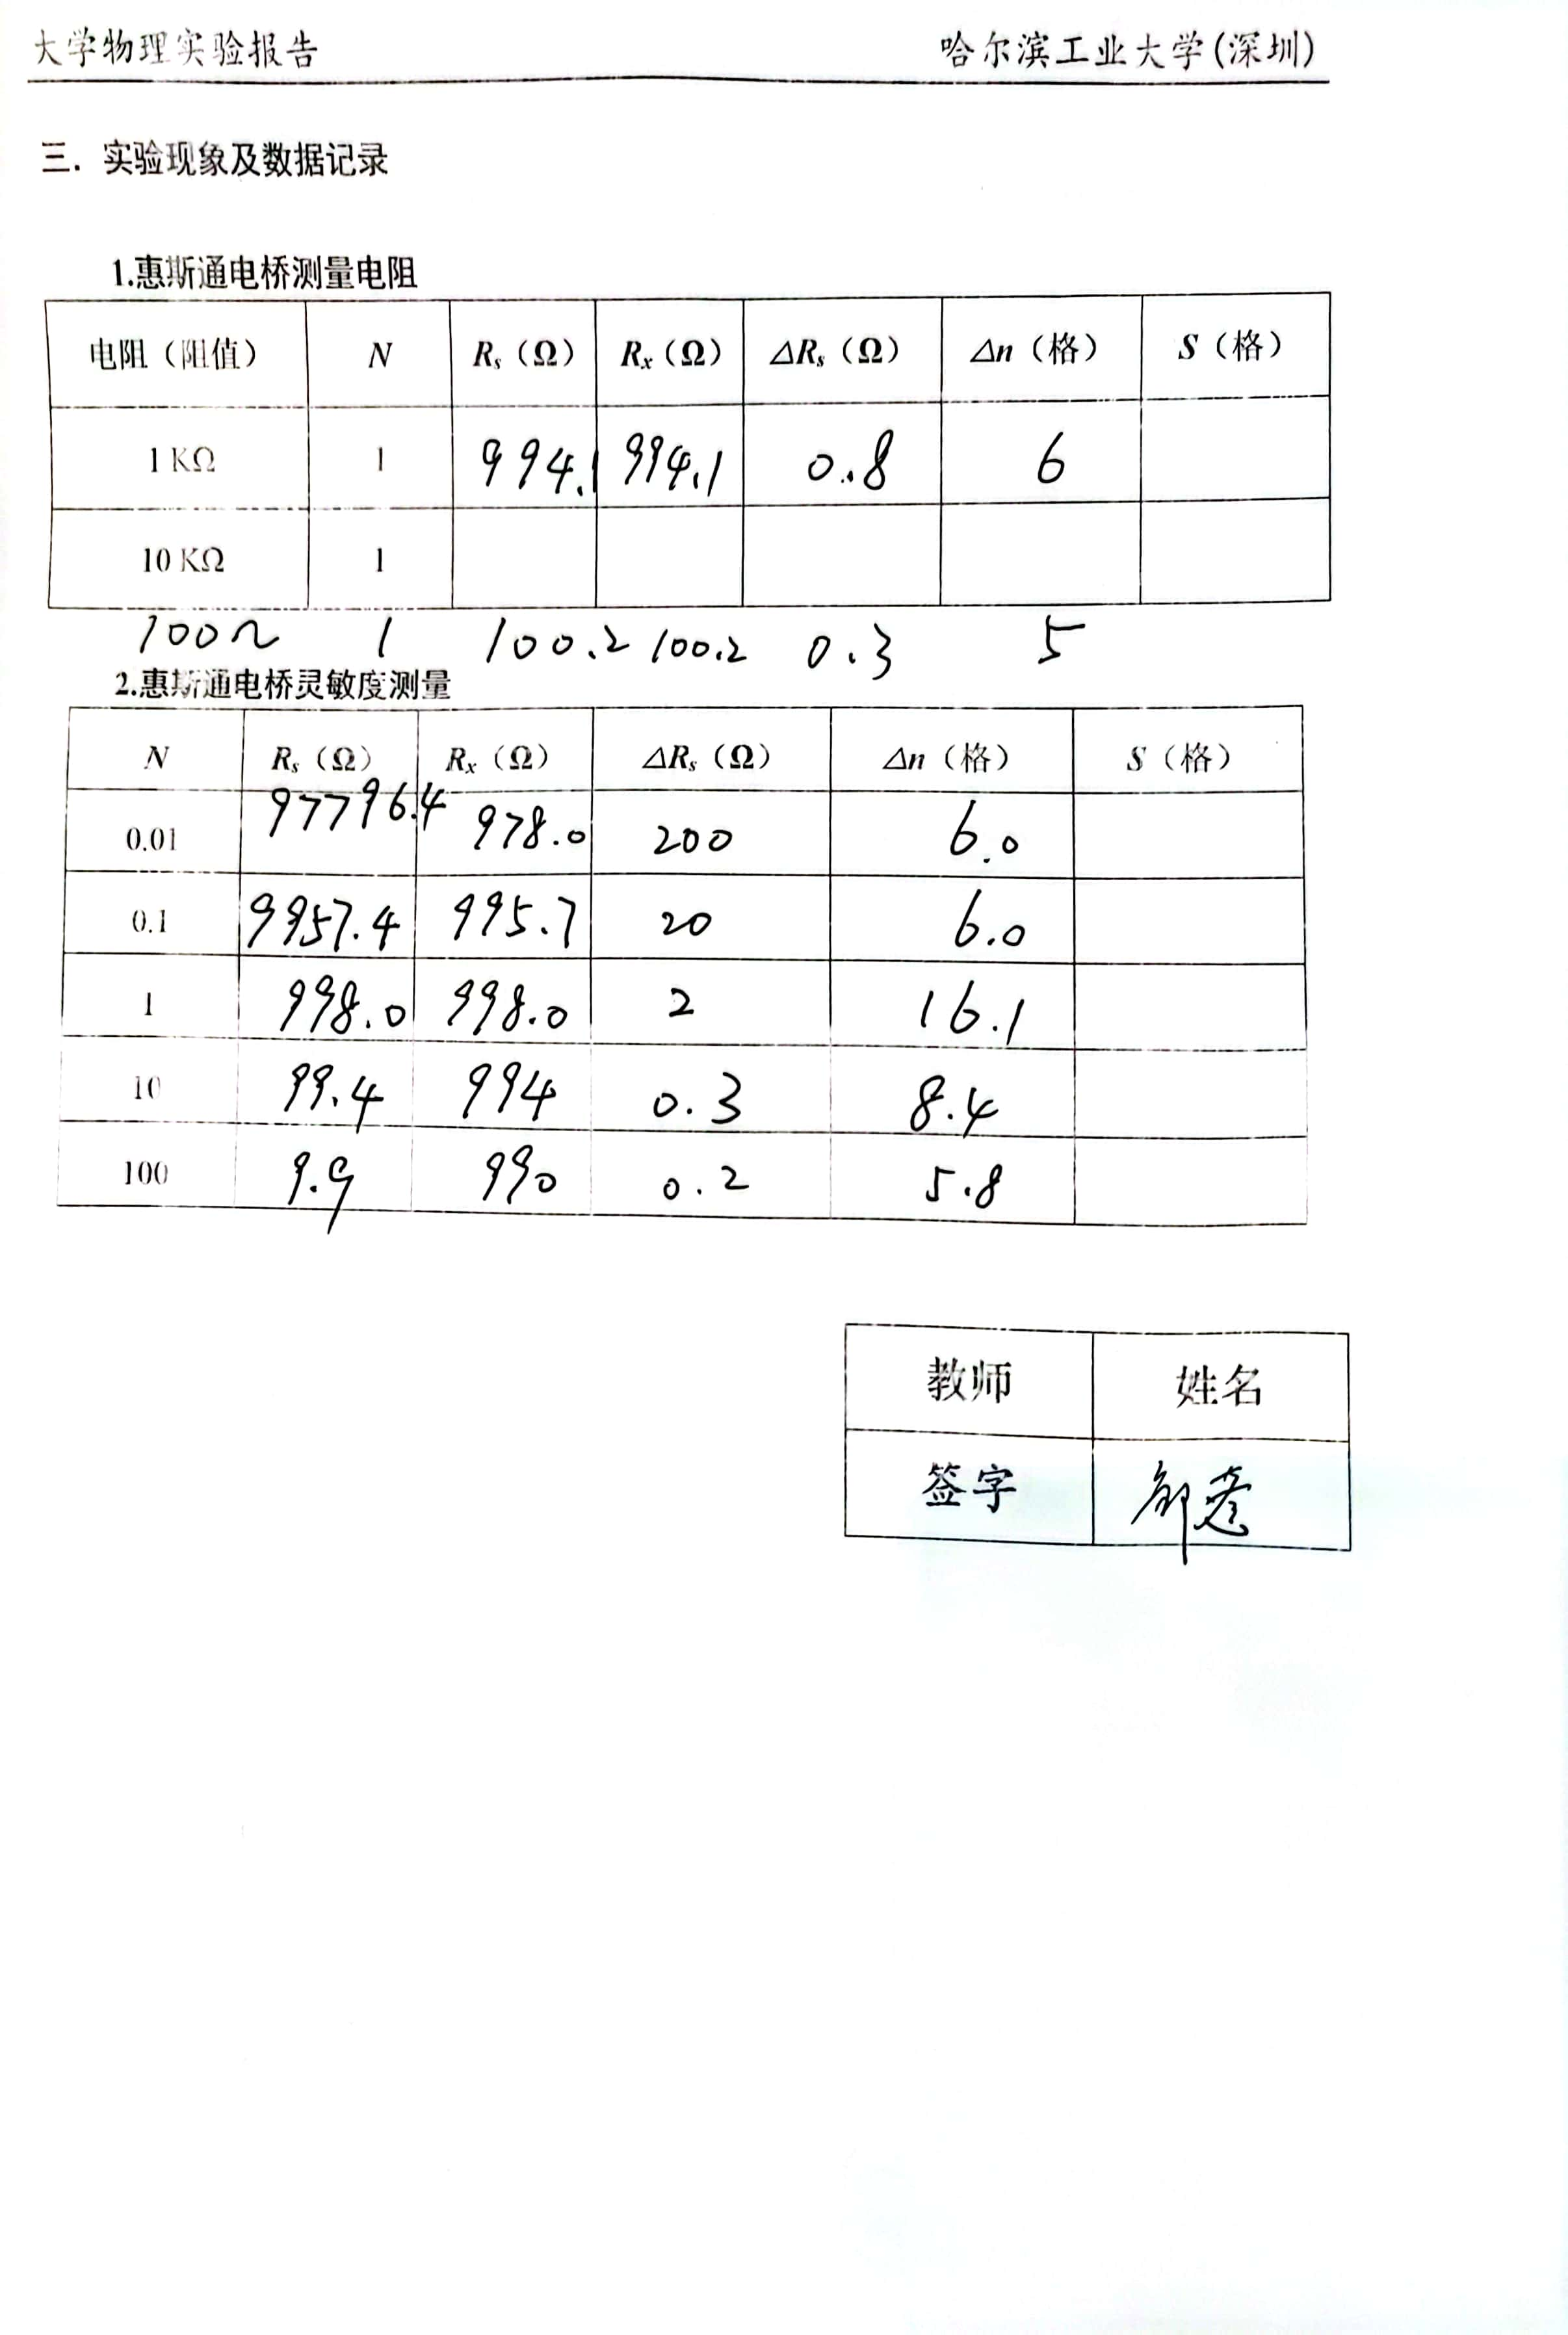 大学物理实验报告 哈尔滨工业大学(深圳)
三. 实验现象及数据记录
1.惠斯通电桥测量电阻
电阻（阻值） N Rs（Ω） Rx（Ω） △Rs（Ω） △n（格） S（格）
1 KΩ 1 994.1 994.1 0.8 6
10 KΩ 1
100Ω 1 100.2 100.2 0.3 5
2.惠斯通电桥灵敏度测量
N Rs（Ω） Rx（Ω） △Rs（Ω） △n（格） S（格）
0.01 97796.4 978.0 200 6.0
0.1 9957.4 995.7 20 6.0
1 998.0 998.0 2 16.1
10 99.4 994 0.3 8.4
100 9.9 990 0.2 5.8
教师 姓名
签字